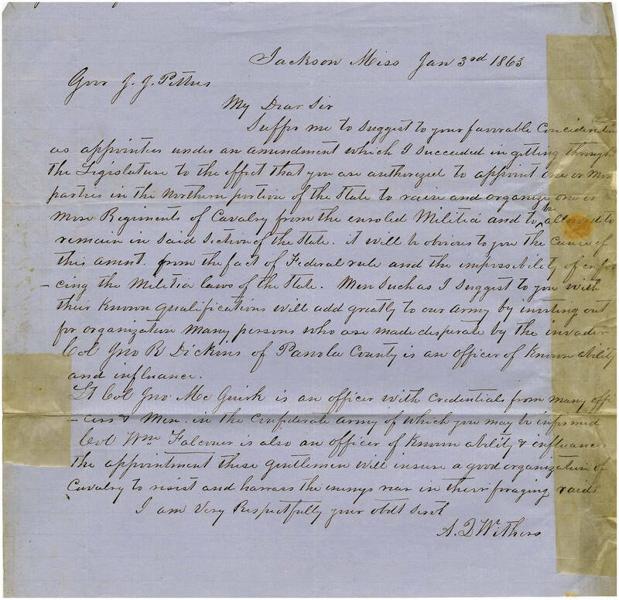 Jackson Miss Jan 3rd 1863
Gov J. J. Pettus
My Dear Sir
Suffer me to suggest to your favorable Consideration
as appointees under an amendment which I succeeded in getting through
the Legislature to the effect that you are authorized to appoint one or more
parties in the Northern portion of the State to raise and organize one or
More Regiments of Cavalry from the enroled Militia and to be allowed to
remain in said section of the State. it will be obvious to you the Cause of
this amnt. from the fact of Federal rule and the impossibility of enfor
-cing the Militia laws of the State. Men such as I suggest to you with
their Known qualifications will add greatly to our army by inviting out
for organization Many persons who are made desperate by the invader
Col Jno R Dickins of Panola County is an officer of Known ability
and influence.
Lt Col Jno. McGuirk is an officer with Credentials from many offi
-cers & Men in the Confederate army of which you may be informed
Col Wm Falconer is also an officer of Known ability & influence
the appointment these gentlemen will insure a good organization of
Cavalry to resist and harrass the enemys rear in their foraging raids
I am Very Respectfully your obdt Svt
A. Q Withers